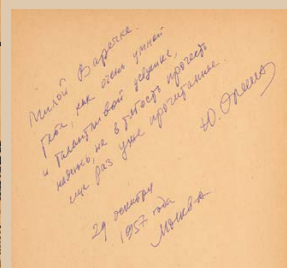 Милой Варечке.
Тебе, как очень умной
и талантливой девочке,
надеюсь, не в тягость прочесть
еще раз уже прочитанное.
Ю. Олеша
29 октября
1957 года
Москва